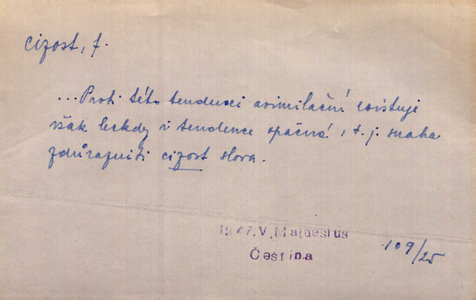 cizost, f.
...Proti této tendenci asimilační existuje
však leckdy i tendence opačná, t. j. snaha
zdůrazniti cizost slova.
1947, V. Mathesius
Čeština
109/25